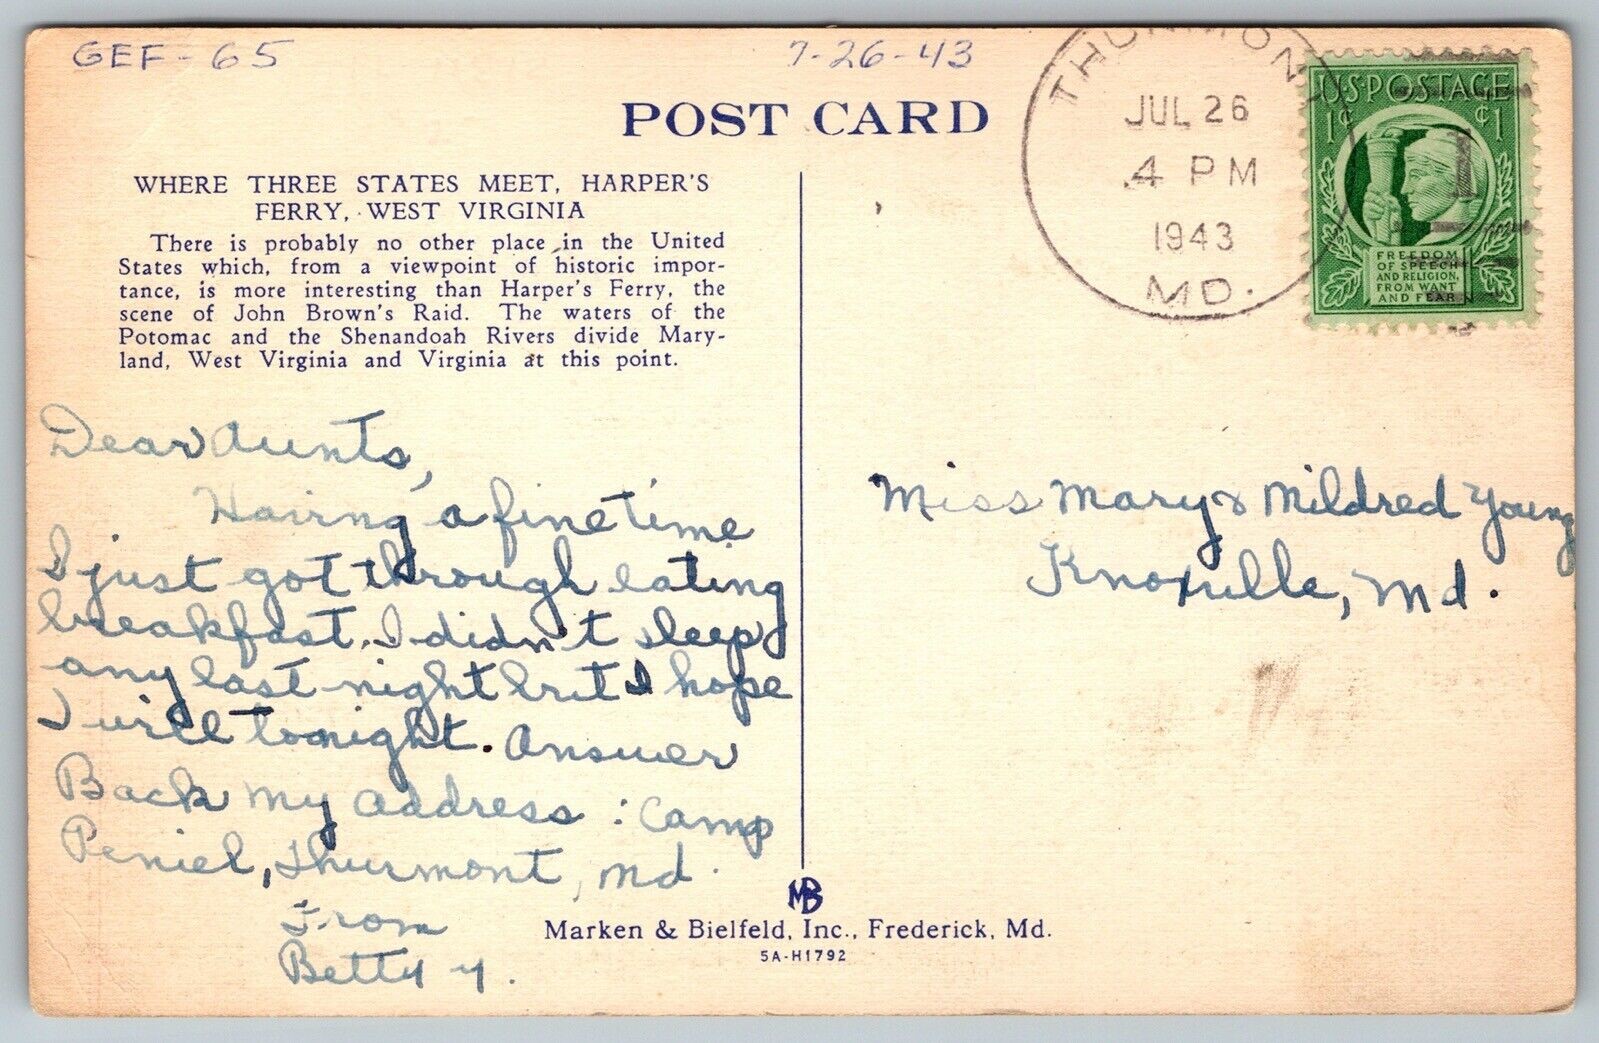 GEF-65
7-26-43
POST CARD
THURMONT
JUL 26
4 PM
1943
MD.
U.S. POSTAGE
1¢ ¢1
FREEDOM
OF SPEECH
AND RELIGION,
FROM WANT
AND FEAR
WHERE THREE STATES MEET, HARPER'S
FERRY, WEST VIRGINIA
There is probably no other place in the United
States which, from a viewpoint of historic impor-
tance, is more interesting than Harper's Ferry, the
scene of John Brown's Raid. The waters of the
Potomac and the Shenandoah Rivers divide Mary-
land, West Virginia and Virginia at this point.
Dear Aunts,
Having a fine time
I just got through eating
breakfast. I didn't sleep
any last night but I hope
I will tonight. Answer
Back my address : Camp
Peniel, Thurmont, Md.
From
Betty Y.
Miss Mary & Mildred Young
Knoxville, Md.
MB
Marken & Bielfeld, Inc., Frederick, Md.
5A-H1792